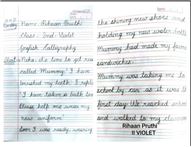 Name: Rihaan Pruthi
Class: IInd - Violet
English Calligraphy
Neha, its time to get rea
called Mummy! I have
brushed my teeth. I repli
"I have taken a bath too
Please help me wear my
new uniform!
I was ready, wearing
the shining new shoes and
holding my new water bottle
Mummy had made my favou
sandwiches.
Mummy was taking me to
school by car as it was
first day. We reached school
and walked to my classroom
Rihaan Pruthi
II VIOLET